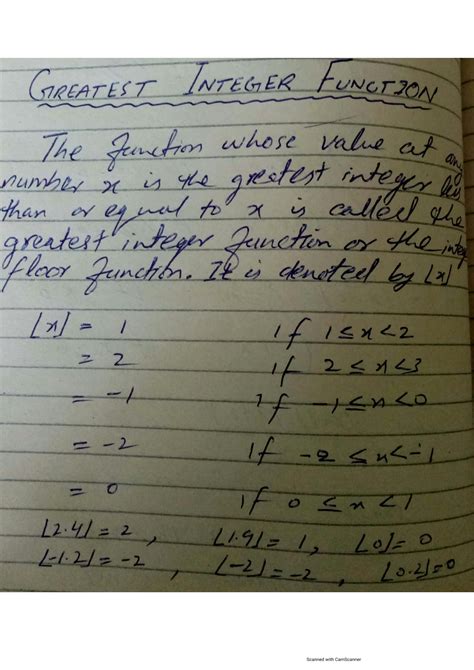 GREATEST INTEGER FUNCTION
The function whose value at any
number x is the greatest integer less
than or equal to x is called the
greatest integer function or the integ
floor function. It is denoted by ⌊x⌋
⌊x⌋ = 1 if 1 ≤ x < 2
= 2 if 2 ≤ x < 3
= -1 if -1 ≤ x < 0
= -2 if -2 ≤ x < -1
= 0 if 0 ≤ x < 1
⌊2.4⌋ = 2 , ⌊1.9⌋ = 1, ⌊0⌋ = 0
⌊-1.2⌋ = -2 , ⌊-2⌋ = -2 , ⌊0.2⌋ = 0
Scanned with CamScanner